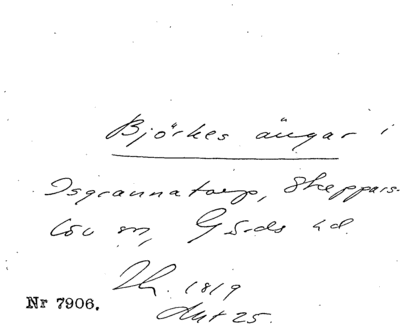 Björkes ängar i
Isgrannatorp, Skeppars-
löv sn, Gärds hd.
1819
Akt 25.
Nr 7906.